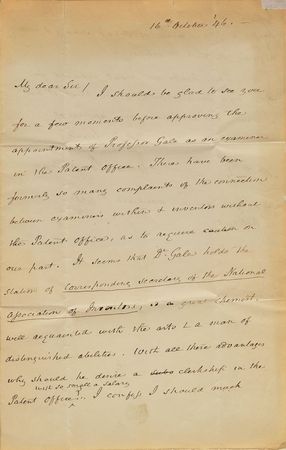 16th October '46. —
My dear Sir! I should be glad to see you
for a few moments before approving the
appointment of Professor Gale as an examiner
in the Patent Office. There have been
formerly so many complaints of the connection
between examiners within & inventors without
the Patent Office, as to require caution on
our part. It seems that Dr. Gale holds the
station of corresponding secretary of the National
Association of Inventors, is a great chemist,
well acquainted with the arts & a man of
distinguished abilities. With all these advantages
why should he desire a clerkship in the
with so small a salary
Patent Office? I confess I should much